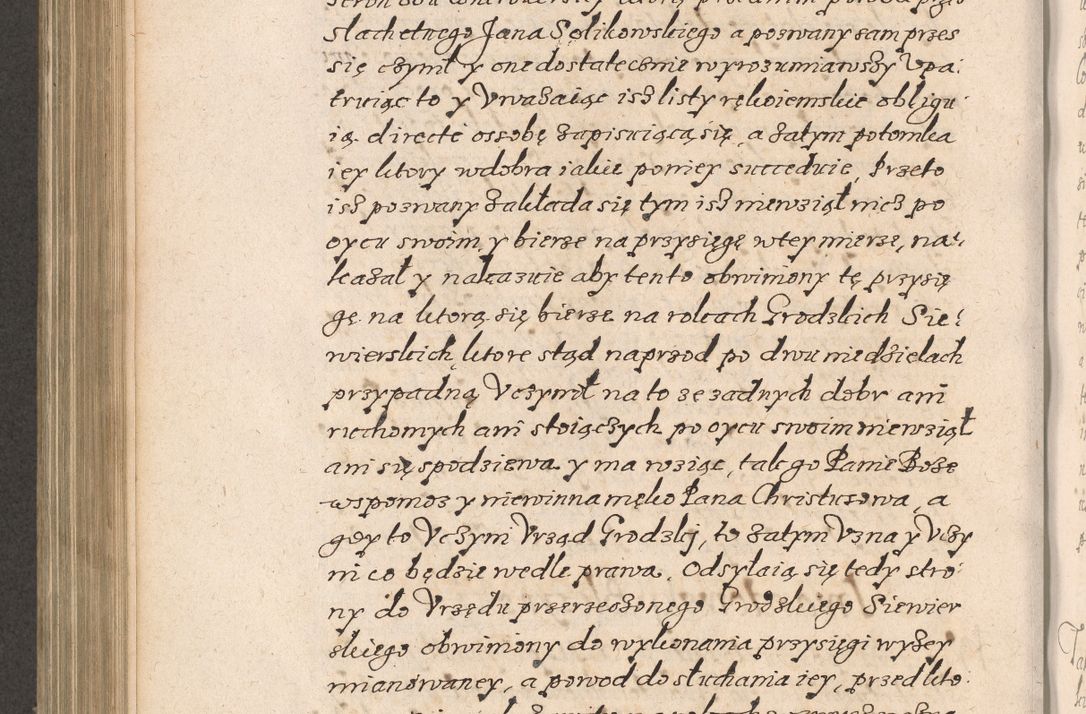 slachetnego Jana Solikowskiego a pozwany sam przes
się czynił y one dostatecznie wyrozumiawszy Vpa:
truiąc to y Vważaiąc isz listy rękoiemskie obligu
ią directe ossobę zapisuiącą się, a zatym potomka
iey ktory w dobra iakie poniey succeduie, Przeto
isz pozwany zakłada się tym isz niewziął nicz po
oycu swoim y bierze na przysięgę wtey mierze, na:
kazał y nakazuie aby tento obwiniony tę przysię
gę na ktorą się bierze na rokach Grodzkich Sie:
wierskich, ktore stąd naprzod po dwu niedzielach
przypadną Vczynił na to ze zadnych dobr ani
ruchomych ani stoiączych po oycu swoim niewziął
ani się spodziewa y ma wziąc, tak go Panie Boże
wspomoz y niewinna męko Pana Christusowa, a
gdy to Vczym Vrząd Grodzkj, to zatym Vzna y Vczy
ni co będzie wedle prawa. Odsylaią się tedy stro:
ny do Vrzędu przerzeczonego Grodzkiego Siewier
skiego obwiniony do wykonania przysięgi wyżey
mianowaney, a powod do słuchania iey, przed kto: